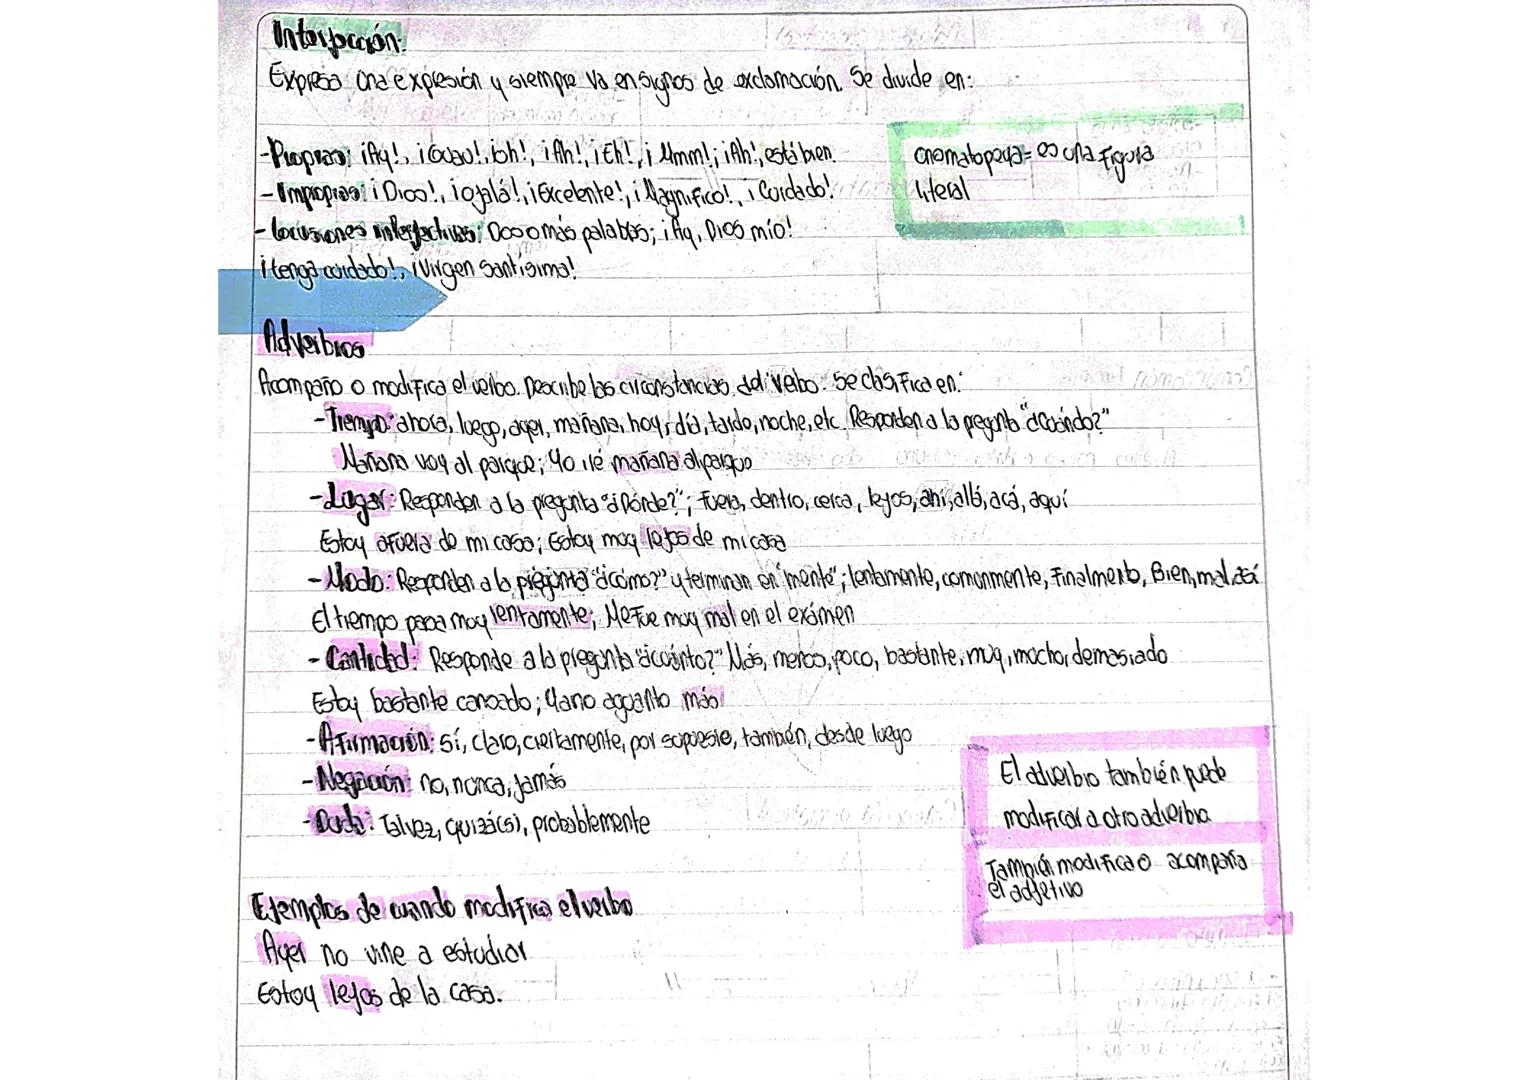 Interjección:
Expresa una expresión y siempre va en signos de exclamación. Se divide en:
-Propias: ¡Ay!, ¡Guau!, ¡oh!, ¡Ah!, ¡Eh!, ¡Umm!; ¡Ah!, está bien.
-Impropias: ¡Dios!, ¡ojalá!, ¡Excelente!, ¡Magnífico!, ¡Cuidado!
-locusiones interjectivas: Dos o más palabras; ¡Ay, Dios mío!
¡tenga cuidado!, ¡Virgen Santísima!
onomatopeya= es una figura
literal
Adverbios
Acompaña o modifica el verbo. Describe las circunstancias del verbo. Se clasifica en:
-Tiempo: ahora, luego, ayer, mañana, hoy, día, tarde, noche, etc. Responden a la pregunta "¿Cuándo?"
Mañana voy al parque; Yo iré mañana al parque
-Lugar: Responden a la pregunta "¿Dónde?"; Fuera, dentro, cerca, lejos, ahí, allá, acá, aquí
Estoy afuera de mi casa; Estoy muy lejos de mi casa
-Modo: Responden a la pregunta "¿cómo?" y terminan en "mente"; lentamente, comunmente, Finalmente, Bien, mal, así
El tiempo pasa muy lentamente; Me Fue muy mal en el exámen
-Cantidad: Responde a la pregunta "¿cuánto?" Más, menos, poco, bastante, muy, mucho, demasiado
Estoy bastante cansado; Ya no aguanto más
-Afirmación: sí, claro, ciertamente, por supuesto, también, desde luego
-Negación: no, nunca, jamás
-Duda: Talvez, quizá(s), probablemente
El adverbio también puede
modificar a otro adverbio.
También modifica o acompaña
el adjetivo
Ejemplos de cuando modifica el verbo
Ayer no vine a estudiar
Estoy lejos de la casa.